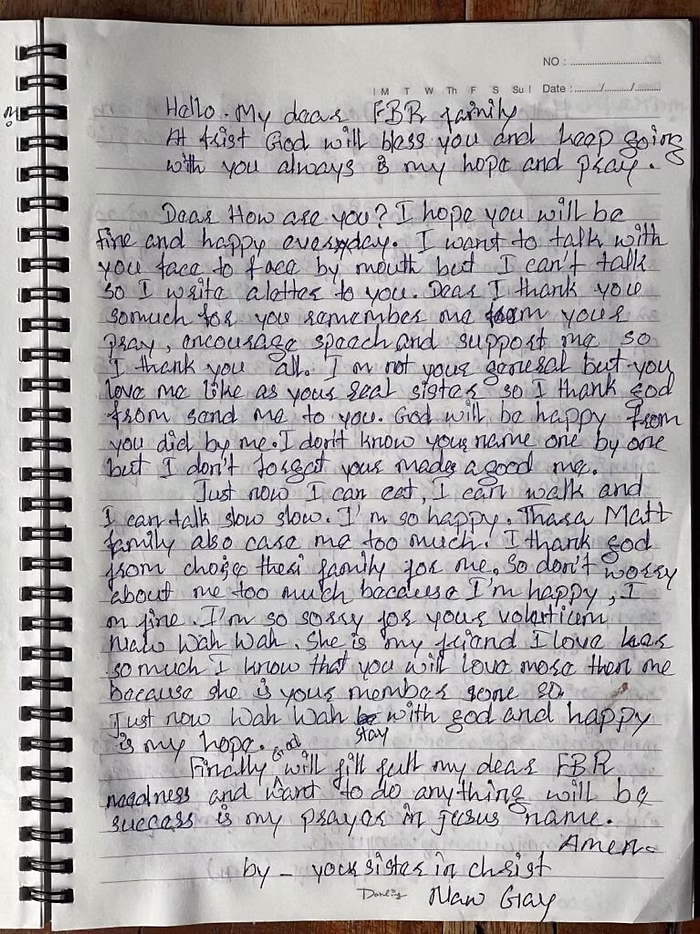 NO :
M T W Th F S Su Date : / /
Hello. My dear FBR family
At frist God will bless you and keep going
with you always is my hope and pray.
Dear How are you? I hope you will be
fine and happy everyday. I want to talk with
you face to face by mouth but I can't talk
so I write aletter to you. Dear I thank you
somuch for you remember me from your
pray, encourage speech and support me so
I thank you all. I'm not your general but you
love me like as your real sister so I thank god
from send me to you. God will be happy from
you did by me. I don't know your name one by one
but I don't forget your made a good me.
Just now I can eat, I can walk and
I can talk slow slow. I'm so happy. Thara Matt
family also care me too much. I thank god
from choise their family for me. So don't worry
about me too much because I'm happy, I
m fine. I'm so sorry for your volenticem
Naw Wah Wah. She is my friend I love her
so much I know that you will love more then me
because she is your member gone so
Just now Wah Wah stay with god and happy
is my hope.
Finally God will fill full my dear FBR
needness and want to do anything will be
success is my prayer in jesus name.
Amen.
by - your sister in christ
Naw Gray